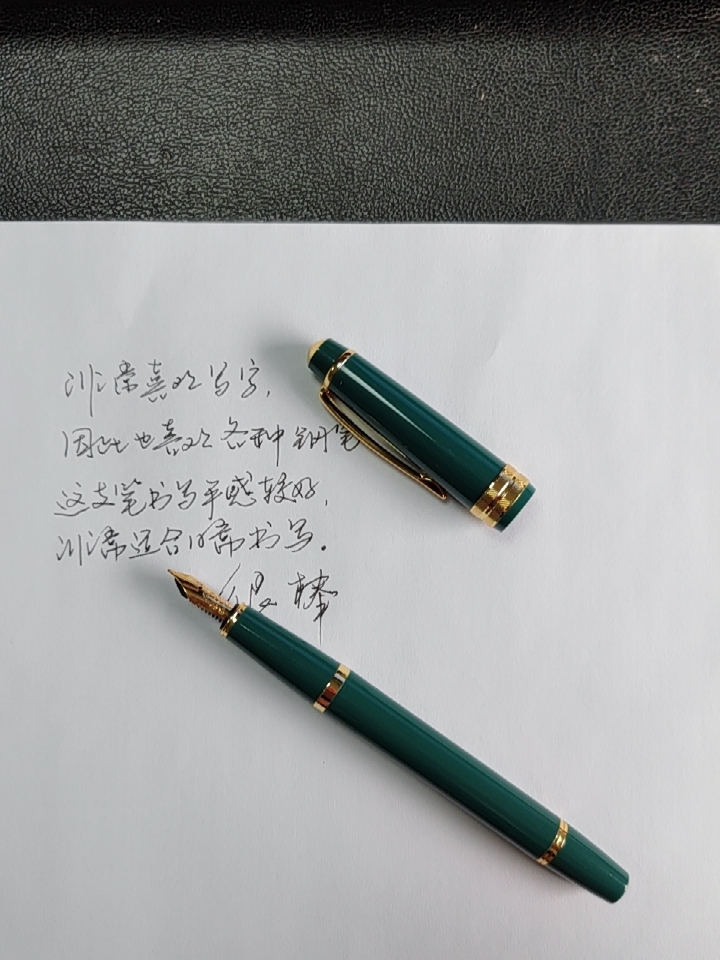 非常喜欢写字,
因此也喜欢各种钢笔
这支笔书写手感较好,
非常适合日常书写.
很棒